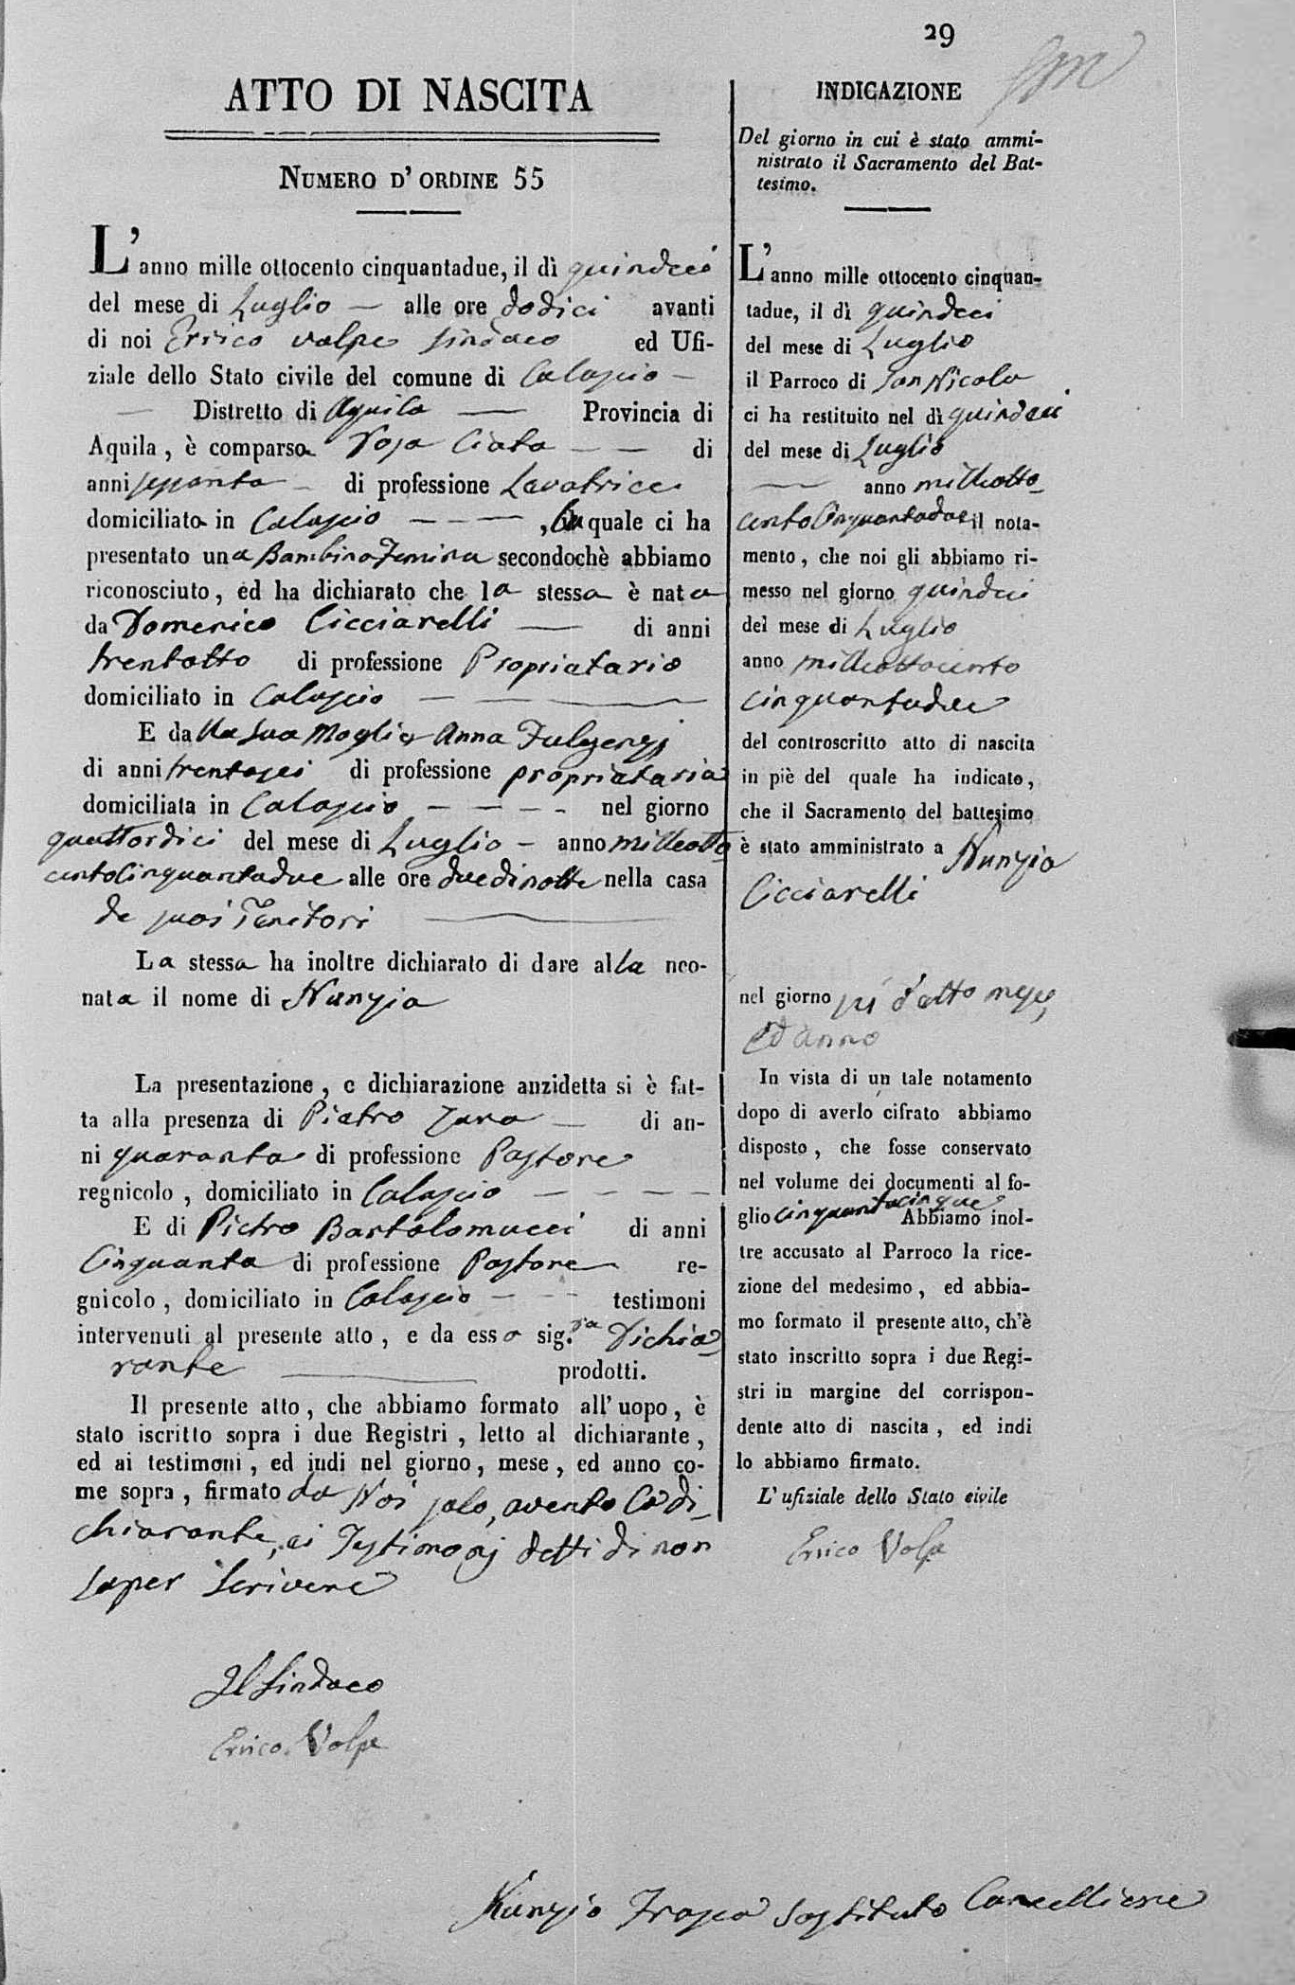 29
ATTO DI NASCITA
NUMERO D' ORDINE 55
L'anno mille ottocento cinquantadue, il dì quindeci
del mese di Luglio — alle ore dodici avanti
di noi Errico Volpe Sindaco ed Ufi-
ziale dello Stato civile del comune di Calascio —
— Distretto di Aquila — Provincia di
Aquila, è comparsa Rosa Ciata — — di
anni sessanta — di professione Lavatrice
domiciliata in Calascio — — — , la quale ci ha
presentato una Bambina Femina secondochè abbiamo
riconosciuto, ed ha dichiarato che la stessa è nata
da Domenico Cicciarelli — di anni
trentotto di professione Propriatario
domiciliato in Calascio — — —
E dalla sua Moglie Anna Fulgenzj
di anni trentasei di professione propriataria
domiciliata in Calascio — — — — nel giorno
quattordici del mese di Luglio — anno milleotto
cento Cinquantadue alle ore due di notte nella casa
de suoi Genitori —
La stessa ha inoltre dichiarato di dare alla neo-
nata il nome di Nunzia
La presentazione, e dichiarazione anzidetta si è fat-
ta alla presenza di Pietro — di an-
ni quaranta di professione Pastore
regnicolo, domiciliato in Calascio — — — —
E di Pietro Bartolomucci di anni
Cinquanta di professione Pastore re-
gnicolo, domiciliato in Calascio — — — testimoni
intervenuti al presente atto, e da essa sig.ra Dichia-
rante — prodotti.
Il presente atto, che abbiamo formato all' uopo, è
stato iscritto sopra i due Registri, letto al dichiarante,
ed ai testimoni, ed indi nel giorno, mese, ed anno co-
me sopra, firmato da Noi solo, avento la di-
chiarante, ei Testimonj detti di non
saper Scrivere
Il Sindaco
Errico Volpe
INDICAZIONE
Del giorno in cui è stato ammi-
nistrato il Sacramento del Bat-
tesimo.
L'anno mille ottocento cinquan-
tadue, il dì quindeci
del mese di Luglio
il Parroco di San Nicola
ci ha restituito nel dì quindeci
del mese di Luglio
— anno milleotto-
cento Cinquantadue il nota-
mento, che noi gli abbiamo ri-
messo nel giorno quindeci
del mese di Luglio
anno milleottocento
cinquantadue
del controscritto atto di nascita
in piè del quale ha indicato,
che il Sacramento del battesimo
è stato amministrato a Nunzia
Cicciarelli
nel giorno sù detto mese,
ed anno
In vista di un tale notamento
dopo di averlo cifrato abbiamo
disposto, che fosse conservato
nel volume dei documenti al fo-
glio cinquantacinque Abbiamo inol-
tre accusato al Parroco la rice-
zione del medesimo, ed abbia-
mo formato il presente atto, ch'è
stato inscritto sopra i due Regi-
stri in margine del corrispon-
dente atto di nascita, ed indi
lo abbiamo firmato.
L' ufiziale dello Stato civile
Errico Volpe
Nunzio Frasca Sostituto Cancelliere